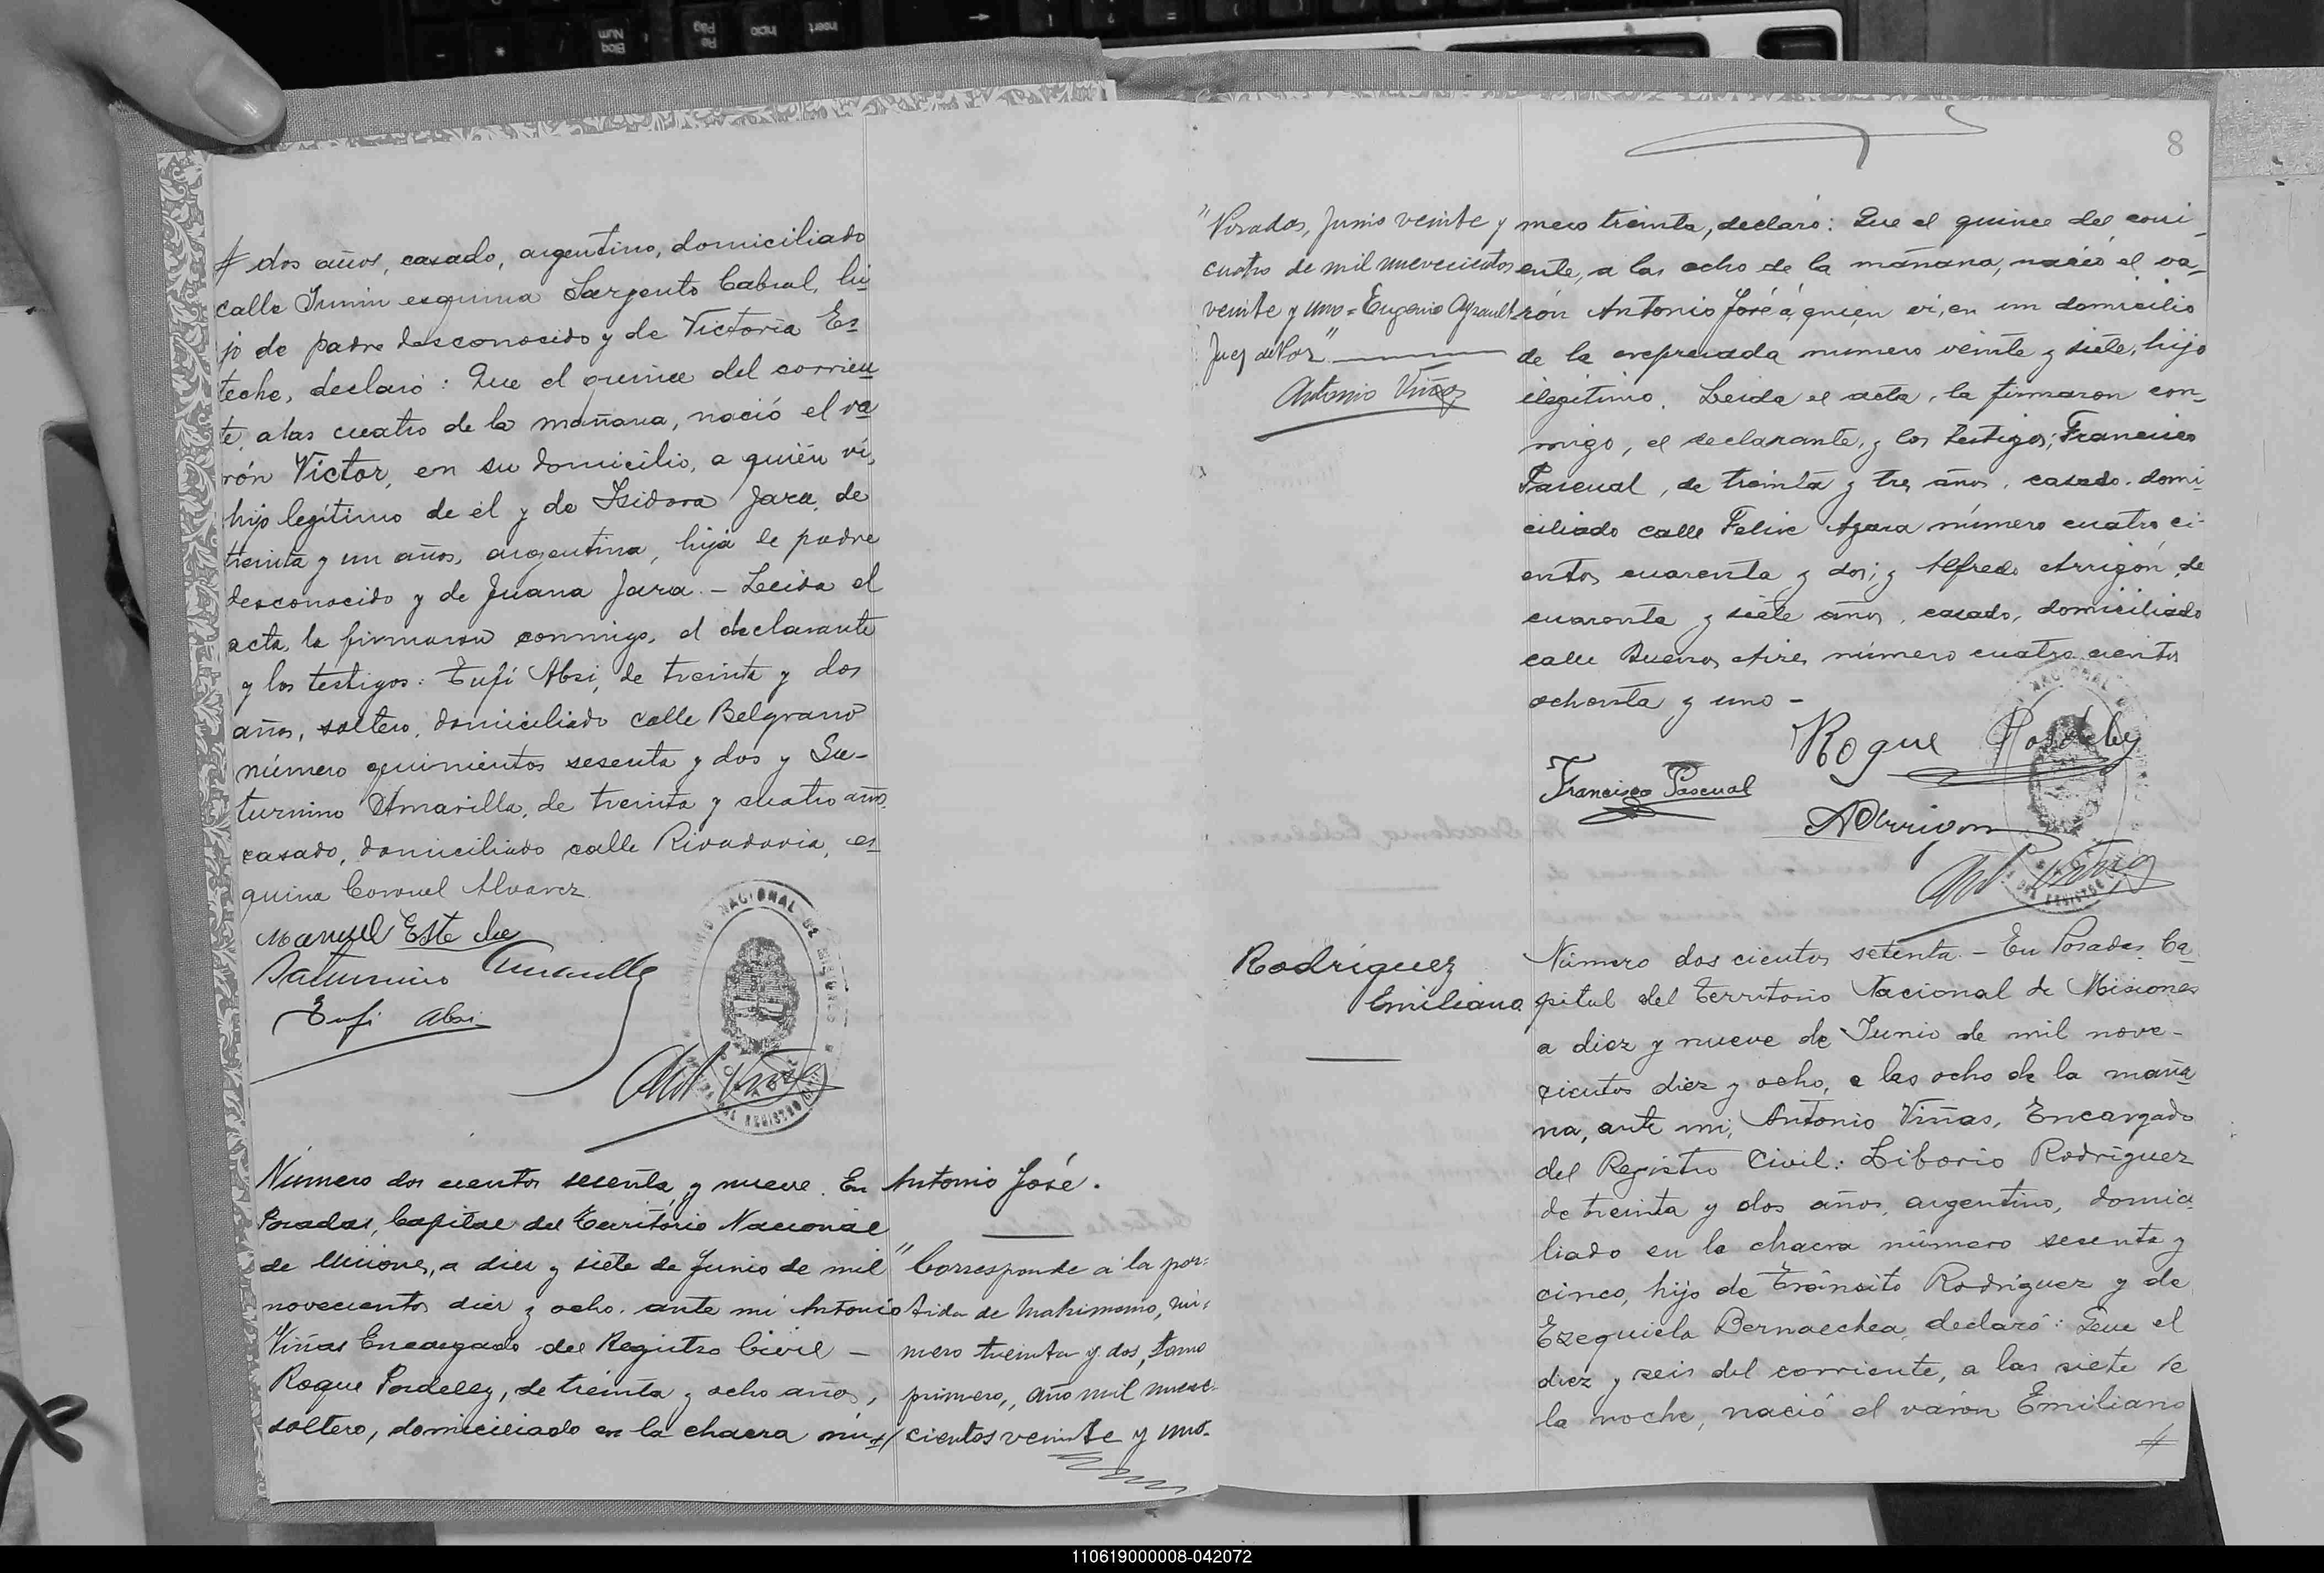 # dos años, casado, argentino, domiciliado
calle Junin esquina Sargento Cabral, hi
jo de padre desconocido y de Victoria Es
teche, declaró: Que el quince del corrien
te, a las cuatro de la mañana, nació el va
rón Victor, en su domicilio, a quién vi,
hijo legítimo de él y de Isidora Jara, de
treinta y un años, argentina, hija de padre
desconocido y de Juana Jara. - Leida el
acta, la firmaron conmigo, el declarante
y los testigos: Tufi Absi, de treinta y dos
años, soltero, domiciliado calle Belgrano
número quinientos sesenta y dos y Sa-
turnino Amarilla, de treinta y cuatro años
casado, domiciliado calle Rivadavia, es
quina Coronel Alvarez.
Manuel Esteche
Saturnino Amarilla
Tufi Absi
Número dos cientos sesenta y nueve. En
Posadas, Capital del Territorio Nacional
de Misiones, a diez y siete de Junio de mil
novecientos diez y ocho. ante mi Antonio
Viñas Encargado del Registro Civil -
Roque Pordeley, de treinta y ocho años,
soltero, domiciliado en la chacra nú-
Antonio José.
"Corresponde a la par-
tida de Matrimonio, nú-
mero treinta y dos, tomo
primero, año mil nueve-
cientos veinte y uno.
8
"Posadas, Junio veinte y
cuatro de mil nuevecientos
veinte y uno = Eugenio Ayrault
Juez de Paz"
Antonio Viñas
mero treinta, declaró: Que el quince del corri-
ente, a las ocho de la mañana, nació el va-
rón Antonio José á quien vi, en un domicilio
de la expresada numero veinte y siete, hijo
ilegitimo. Leida el acta, la firmaron con-
migo, el declarante, y los testigos; Francisco
Pascual, de treinta y tres años, casado. domi-
ciliado calle Felix Azara número cuatro ci-
entos cuarenta y dos; y Alfredo Arrigón, de
cuarenta y siete años, casado, domiciliado
calle Buenos Aires número cuatro cientos
ochenta y uno -
Roque Pordeley
Francisco Pascual
A Arrigon
Rodríguez
Emiliano
Número dos cientos setenta. - En Posadas, Ca
pital del Territorio Nacional de Misiones
a diez y nueve de Junio de mil nove-
cientos diez y ocho, a las ocho de la maña
na, ante mi, Antonio Viñas, Encargado
del Registro Civil: Liborio Rodríguez
de treinta y dos años, argentino, domici
liado en la chacra número sesenta y
cinco, hijo de Tránsito Rodríguez y de
Ezequiela Bernaechea, declaró: Que el
diez y seis del corriente, a las siete de
la noche, nació el varón Emiliano
#
110619000008-042072